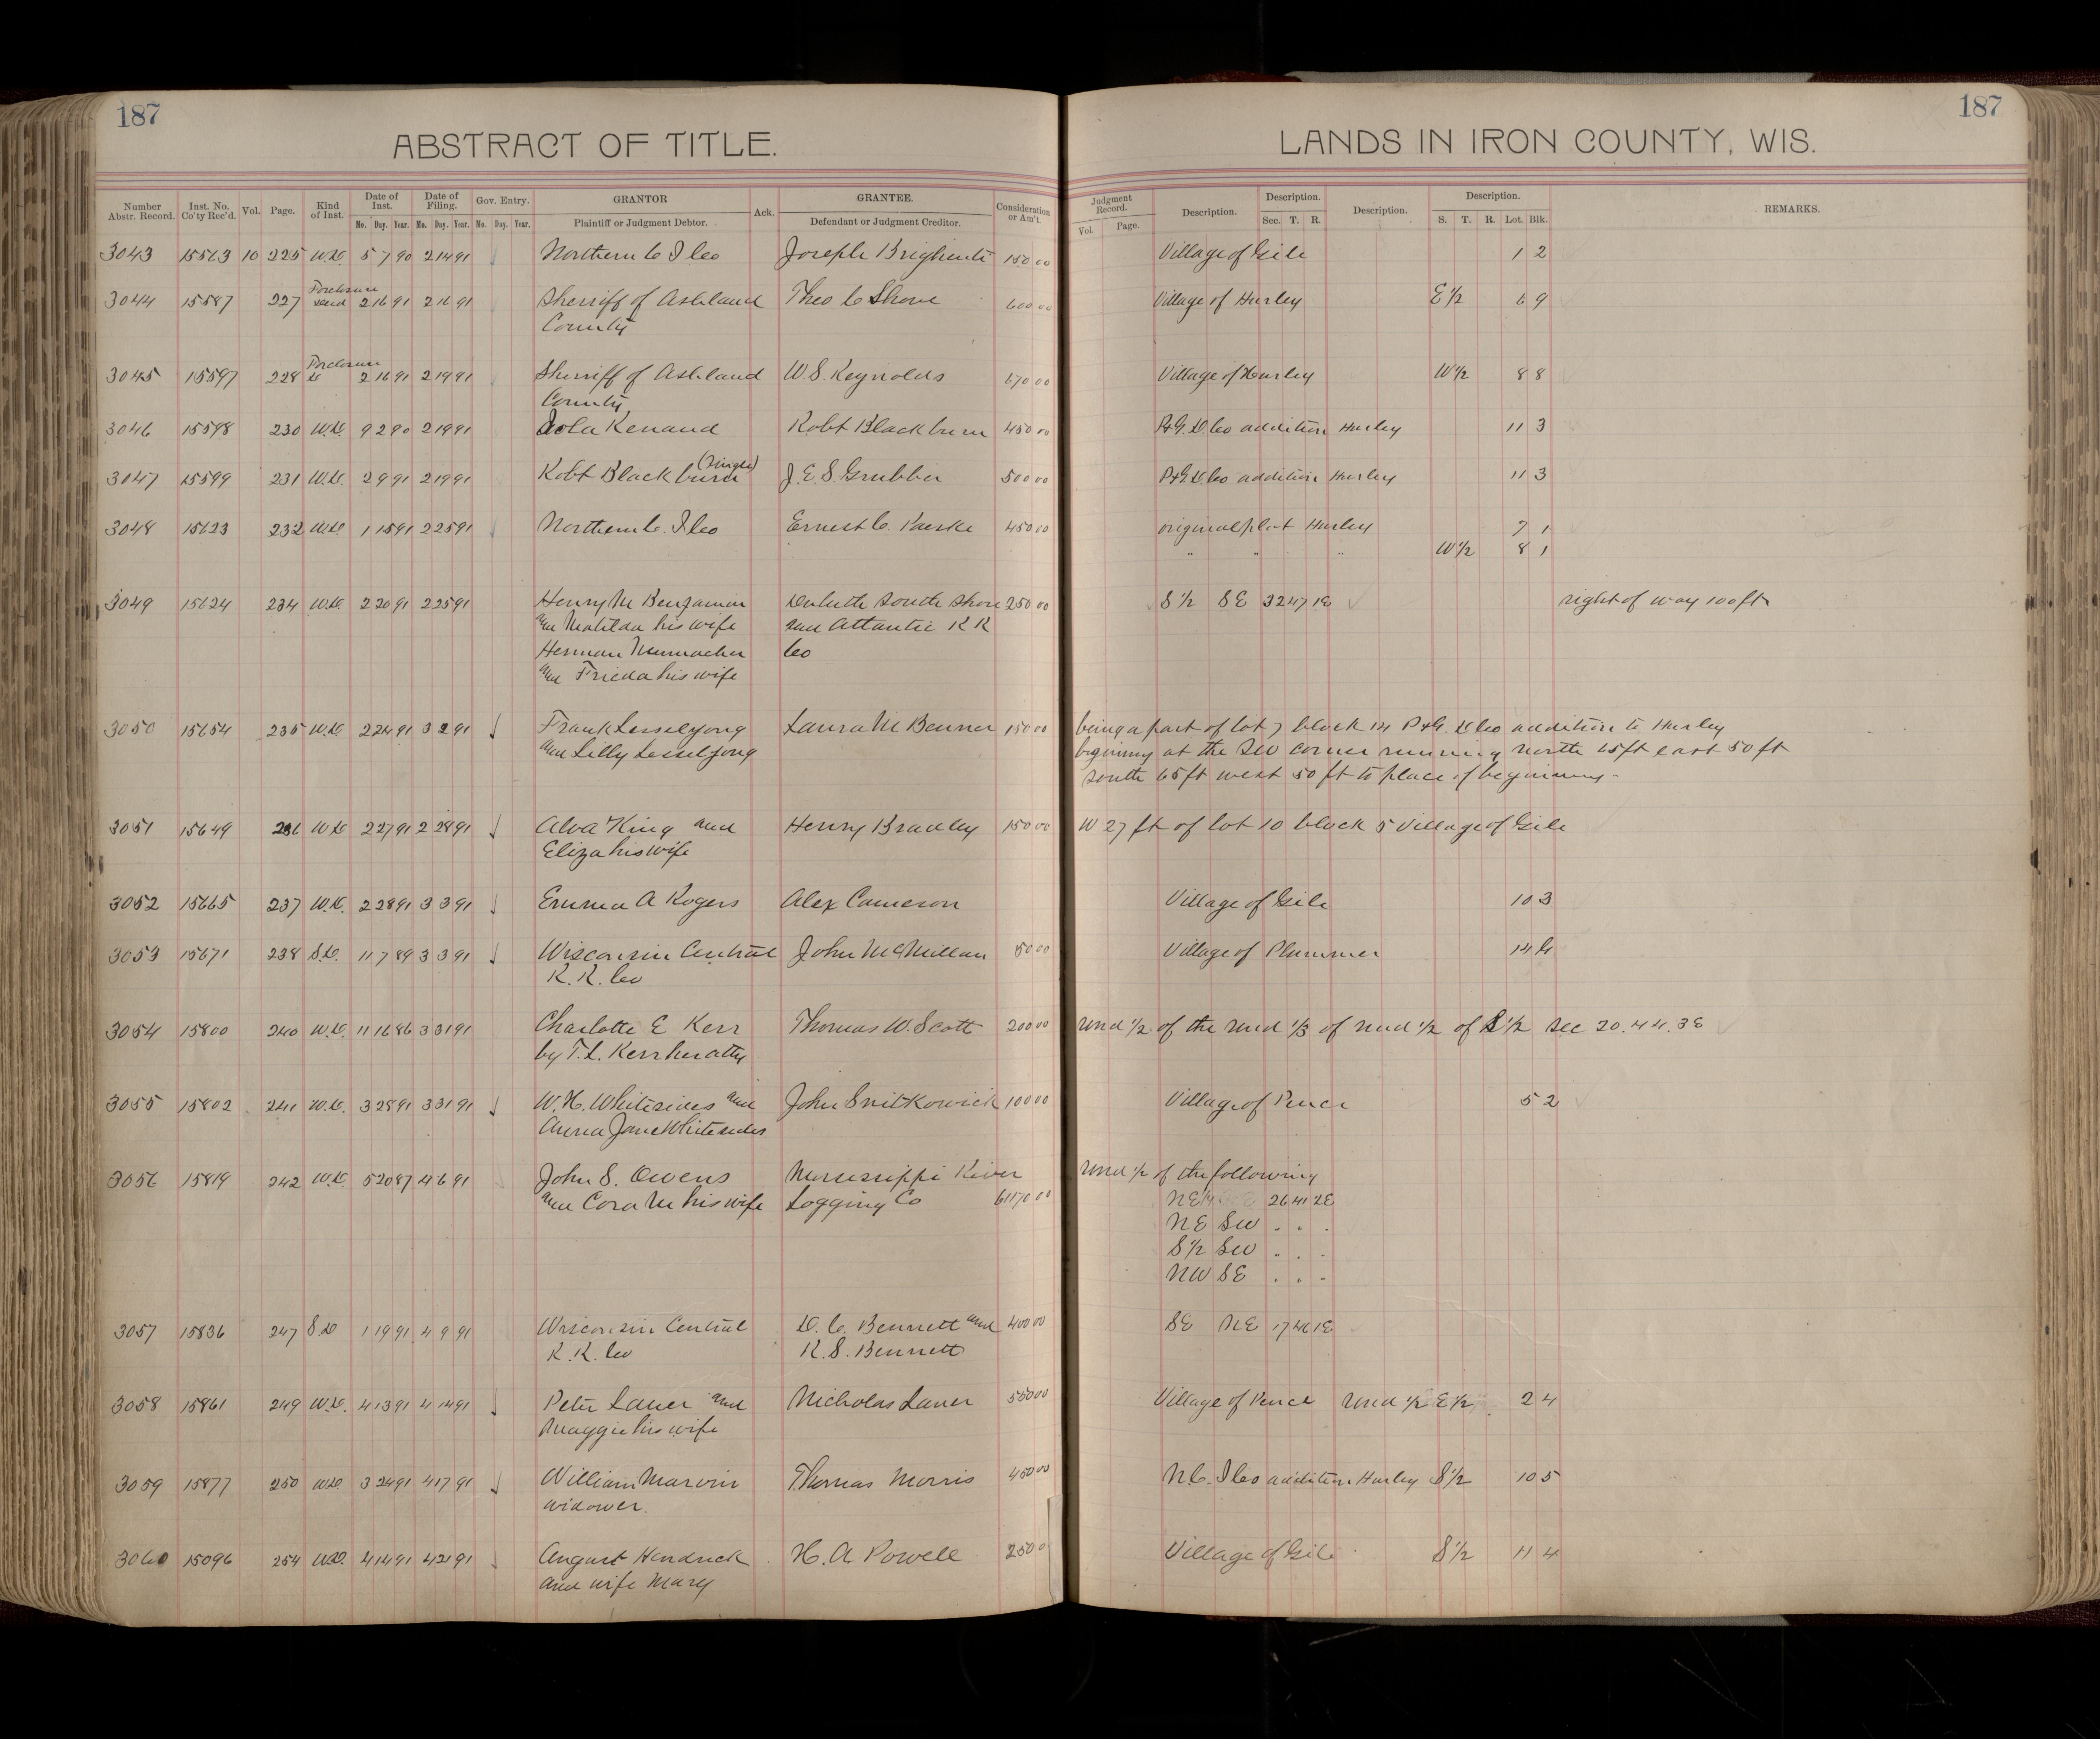 187
187
ABSTRACT OF TITLE.
LANDS IN IRON COUNTY, WIS.
Number Abstr. Record. Inst. No. Co'ty Rec'd. Vol. Page. Kind of Inst. Date of Inst. Date of Filing. Gov. Entry. GRANTOR Ack. GRANTEE. Consideration or Am't. Judgment Record. Description. Description. Description. Description. REMARKS.
Mo. Day. Year. Mo. Day. Year. Mo. Day. Year. Plaintiff or Judgment Debtor. Defendant or Judgment Creditor. Vol. Page. Sec. T. R. S. T. R. Lot. Blk.
3043 15563 10 225 W.D. 5 7 90 2 14 91 Northern C I Co Joseph Brighenti 150 00 Village of Gile 1 2
Foreclosure
3044 15587 227 deed 2 16 91 2 16 91 Sherriff of Ashland Theo C Shove 600 00 Village of Hurley E 1/2 6 9
County
Foreclosure
3045 15597 228 D 2 16 91 2 19 91 Sherriff of Ashland W.S. Reynolds 670 00 Village of Hurley W 1/2 8 8
County
3046 15598 230 W.D. 9 2 90 2 19 91 Zola Renaud Robt Blackburn 450 00 P&G.D.Co addition Hurley 11 3
3047 15599 231 W.D. 2 9 91 2 19 91 Robt Blackburn (Single) J.E.S. Grubber 500 00 P&G.D.Co addition Hurley 11 3
3048 15623 232 W.D. 1 15 91 2 25 91 Northern C. I Co Ernest C. Kaeske 450 00 original plat Hurley 7 1
" " " W 1/2 8 1
3049 15624 234 W.D. 2 20 91 2 25 91 Henry M Benjamin Duluth South Shore 250 00 S 1/2 SE 32 47 1E right of way 100 ft
and Matilda his wife and Atlantic R R
Herman Nunnacher Co
and Frieda his wife
3050 15654 235 W.D. 2 24 91 3 2 91 Frank Lesselyong Laura M Benner 150 00 being a part of lot 7 block 14 P&G. D Co addition to Hurley
and Lilly Lesselyong begining at the SW corner running north 65 ft east 50 ft
south 65 ft west 50 ft to place of beginning-
3051 15649 236 W.D. 2 27 91 2 28 91 Alva King and Henry Bradley 150 00 W 27 ft of lot 10 block 5 Village of Gile
Eliza his wife
3052 15665 237 W.D. 2 28 91 3 3 91 Emma A Rogers Alex Cameron Village of Gile 10 3
3053 15671 238 S.D. 11 7 89 3 3 91 Wisconsin Central John McMillan 50 00 Village of Plummer 14 4
R.R. Co
3054 15800 240 W.D. 11 16 86 3 31 91 Charlotte E Kerr Thomas W. Scott 200 00 und 1/2 of the und 1/3 of und 1/2 of S 1/2 Sec 20.44.3E
by T.L. Kerr her atty
3055 15802 241 W.D. 3 28 91 3 31 91 W.H. Whitesides and John Snitkowick 100 00 Village of Pence 5 2
Anna Jane Whitesides
3056 15819 242 W.D. 5 20 87 4 6 91 John S. Owens Mississippi River und 1/2 of the following
and Cora M his wife Logging Co 61170 00 NE 1/4 26 41 2E
NE SW . . .
S 1/2 SW . . .
NW SE . . .
3057 15836 247 S D 1 19 91 4 9 91 Wisconsin Central D.C. Bennett and 400 00 SE NE 17 46 1E
R.R. Co R.S. Bennett
3058 15861 249 W.D. 4 13 91 4 14 91 Peter Lauer and Nicholas Lauer 550 00 Village of Pence und 1/2 E 1/2 2 4
Maggie his wife
3059 15877 250 W.D. 3 24 91 4 17 91 William Marvin Thomas Morris 450 00 N.C. I Co addition Hurley S 1/2 10 5
widower.
3060 15096 254 W.D. 4 14 91 4 21 91 August Hendrick H. A Powell 250 0 Village of Gile S 1/2 11 4
and wife Mary